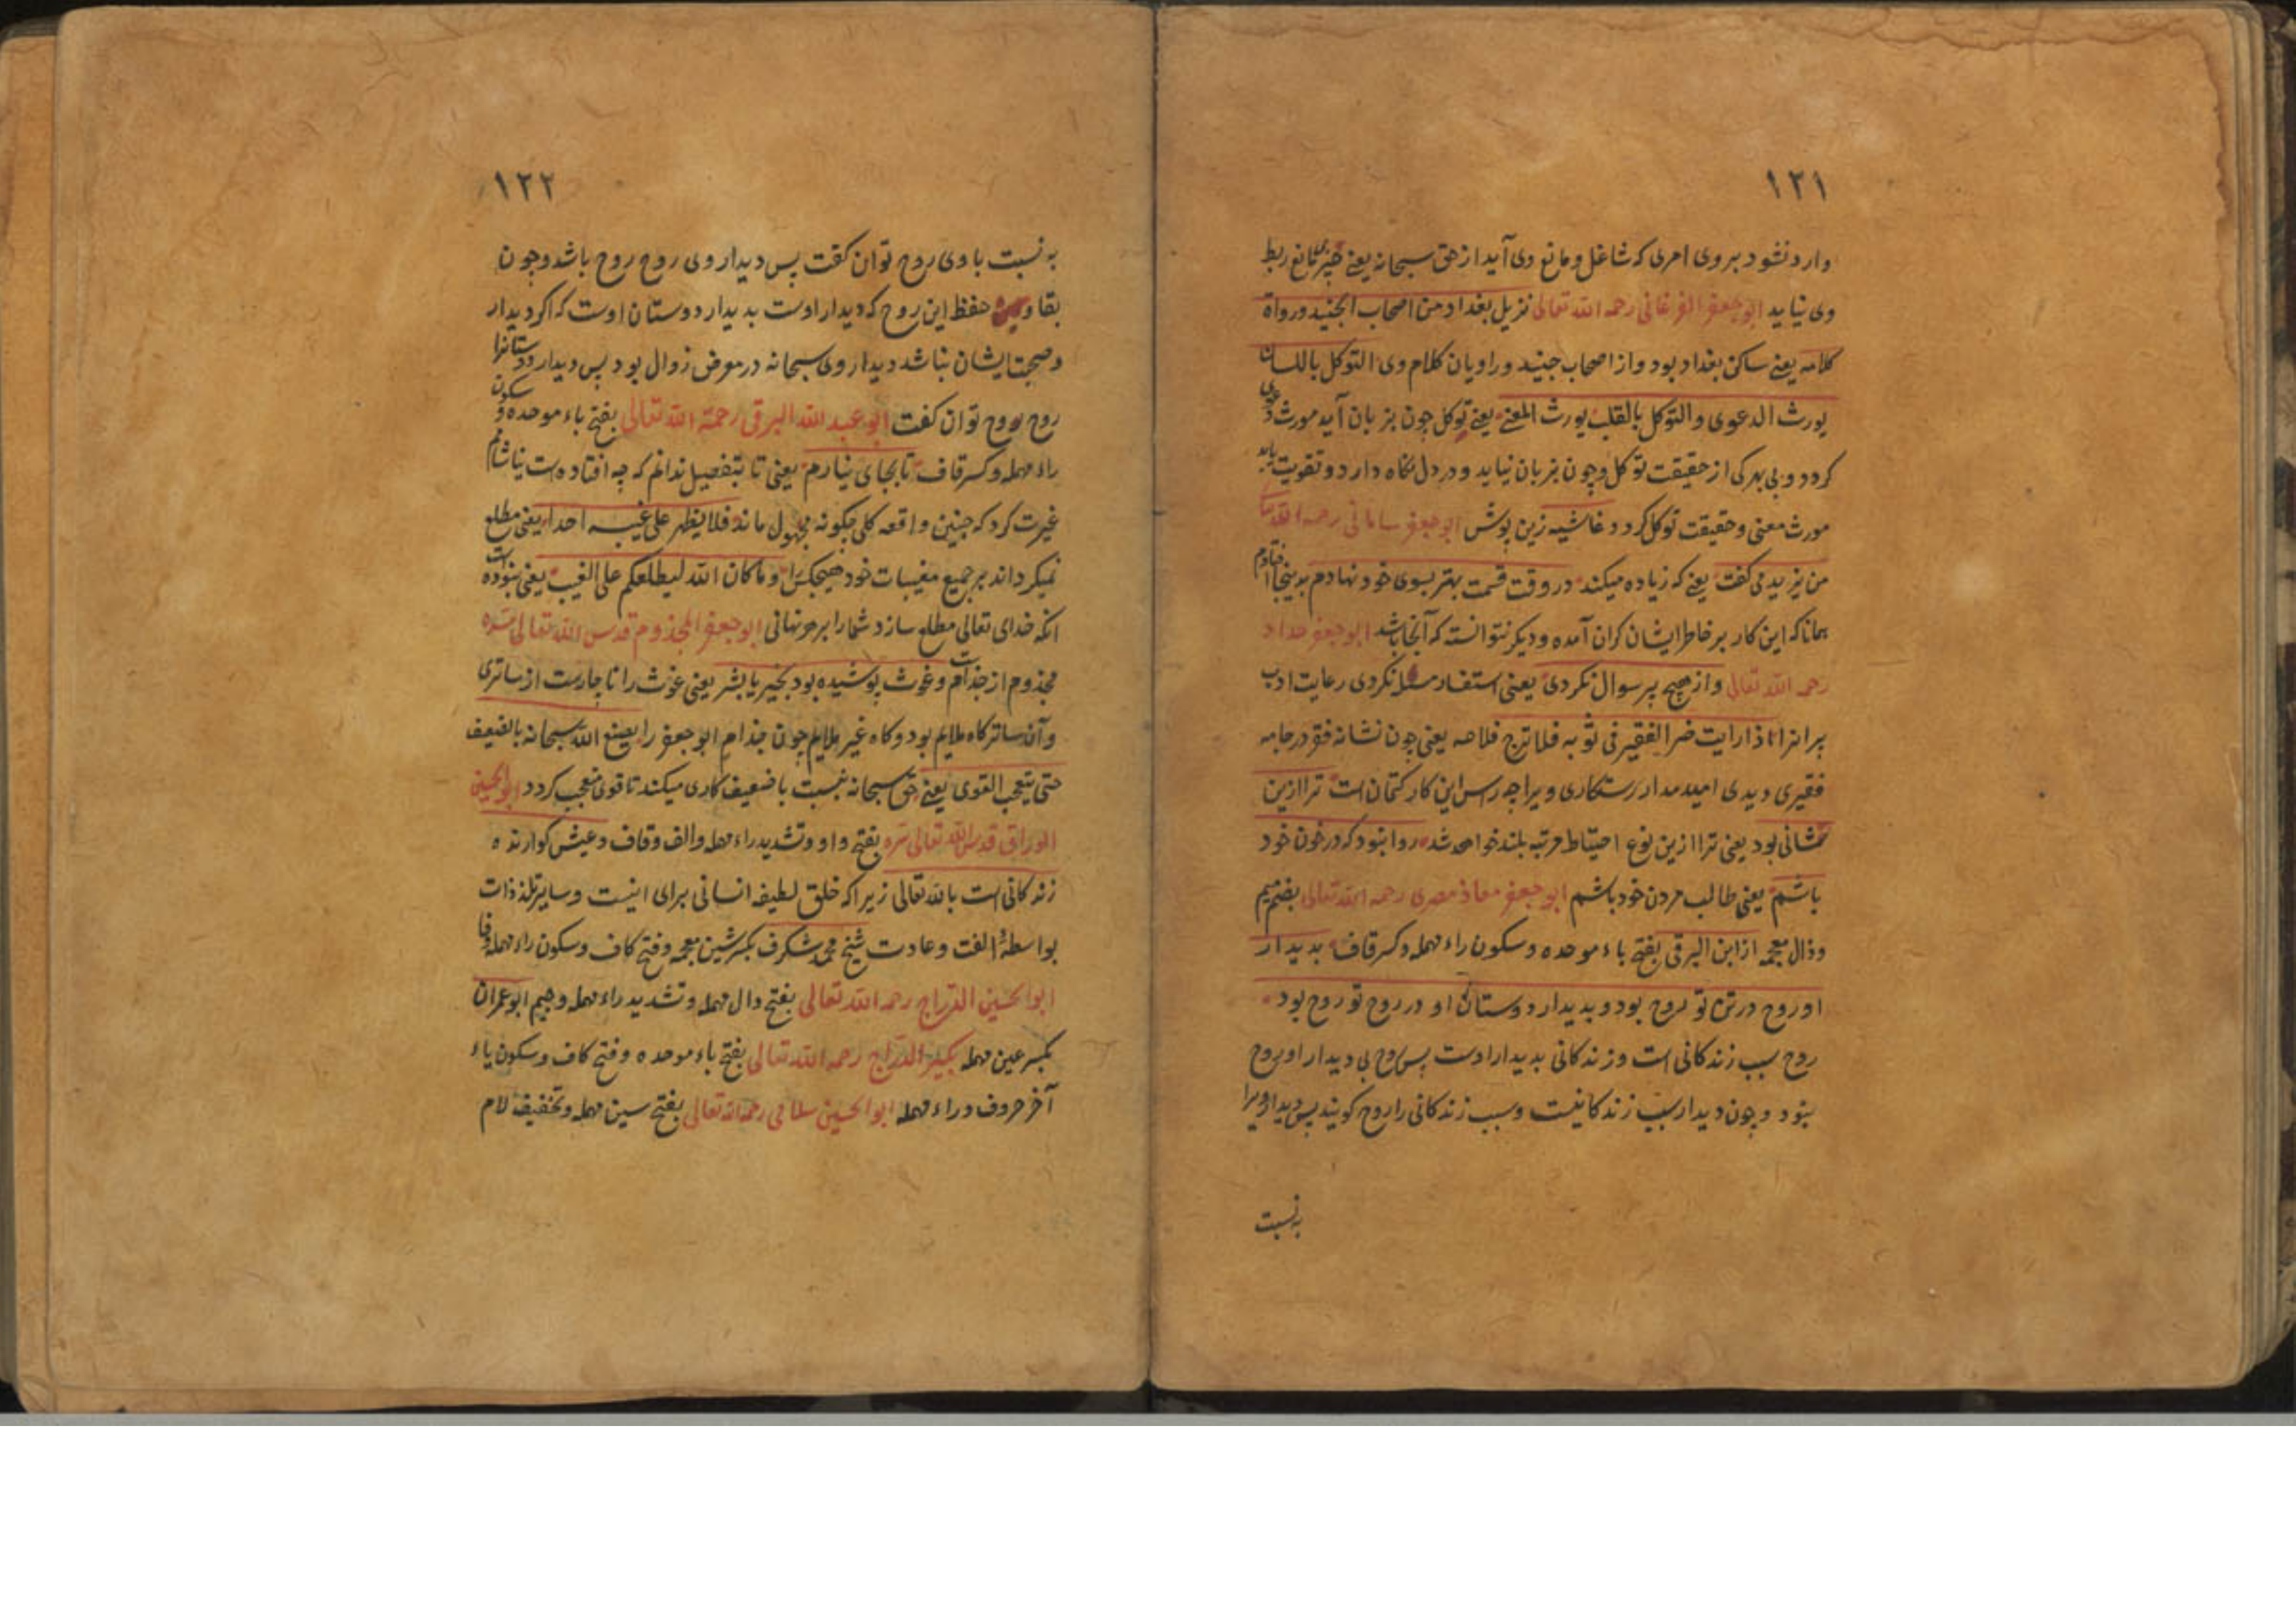 ١٢١
وارد نشود بر وی امری که شاغل و مانع وی آید از حق سبحانه یعنی هیچ چیز مانع ربط
وی نیاید ابو جعفر الفرغانی رحمه الله تعالی نزیل بغداد من اصحاب الجنید و رواة
کلامه یعنی ساکن بغداد بود و از اصحاب جنید و راویان کلام وی التوکل باللسان
یورث الدعوی و التوکل بالقلب یورث المعنی یعنی توکل چون بزبان آید مورث دعوی
کردد و بی بهرکی از حقیقت توکل و چون بزبان نیاید و در دل نکاه دارد و تقویت یابد
مورث معنی و حقیقت توکل کردد غاشیه زین پوش ابو جعفر سامانی رحمه الله تعالی
من یزید می کفت یعنی که زیاده میکند در وقت قسمت بهتر بسوی خود نهادم بدینجا افتادم
همانا که این کار بر خاطر ایشان کران آمده و دیکر نتوانسته که آنجا باشد ابو جعفر حداد
رحمه الله تعالی و از هیچ پیر سوال نکردی یعنی استفسار مسئله نکردی رعایت ادب
پیرانرا اذا رایت ضر الفقیر فی ثوبه فلا ترج فلاحه یعنی چون نشانه فقر در جامه
فقیری دیدی امید مدار رستکاری ویرا چه راس این کار کتمان است ترا ازین
نشانی بود یعنی ترا ازین نوع احتیاط مرتبه بلند خواهد شد روا نبود که در خون خود
باشم یعنی طالب مردن خود باشم ابو جعفر معاذ مصری رحمه الله تعالی بضم میم
و ذال معجمه از ابن البرقی بفتح باء موحده و سکون راء مهمله و کسر قاف بدیدار
او روح در تن تو روح بود و بدیدار دوستان او در روح تو روح بود
روح سبب زندکانی است و زندکانی بدیدار اوست پس روح بی دیدار او روح
نبود و چون دیدار سبب زندکانیست و سبب زندکانی را روح کویند پس دیدار ویرا
به نسبت
١٢٢
به نسبت با وی روح توان کفت پس دیدار وی روح روح باشد و چون
بقا و حفظ این روح که دیدار اوست بدیدار دوستان اوست که اکر دیدار
و صحبت ایشان نباشد دیدار وی سبحانه در معرض زوال بود پس دیدار دوستانرا
روح روح توان کفت ابو عبد الله البرقی رحمة الله تعالی بفتح باء موحده و سکون
راء مهمله و کسر قاف تا بجای نیارم یعنی تا بتفصیل ندانم که چه افتاده است نیاشامم
غیرت کرد که چنین واقعه کلی چکونه مجهول ماند فلا یظهر علی غیبه احدا یعنی مطلع
نمیکرداند بر جمیع مغیبات خود هیچکس را و ما کان الله لیطلعکم علی الغیب یعنی نبوده است
انکه خدای تعالی مطلع سازد شما را بر هر نهانی ابو جعفر المجذوم قدس الله تعالی سره
مجذوم از جذام است و غوث پوشیده بود بخیر یا بشر یعنی غوث را ناچارست از ساتری
و آن ساتر کاه ملایم بود و کاه غیر ملایم چون جذام ابو جعفر را یصنع الله سبحانه بالضعیف
حتی یتعجب القوی یعنی حق سبحانه نسبت با ضعیف کاری میکند تا قوی متعجب کردد ابو الحسین
الوراق قدس الله تعالی سره بفتح واو و تشدید راء مهمله و الف و قاف و عیش کوارنده
زندکانی است بالله تعالی زیرا که خلق لطیفه انسانی برای اینست و سایر تلذذات
بواسطهٔ الفت و عادت شیخ محمد شکرف بکسر شین معجمه و فتح کاف و سکون راء مهمله و فا
ابو الحسین الدراج رحمه الله تعالی بفتح دال مهمله و تشدید راء مهمله و جیم ابو عمران
بکسر عین مهمله بکیر الدراج رحمه الله تعالی بفتح باء موحده و فتح کاف و سکون یاء
آخر حروف و راء مهمله ابو الحسین سلامی رحمه الله تعالی بفتح سین مهمله و تخفیف لام